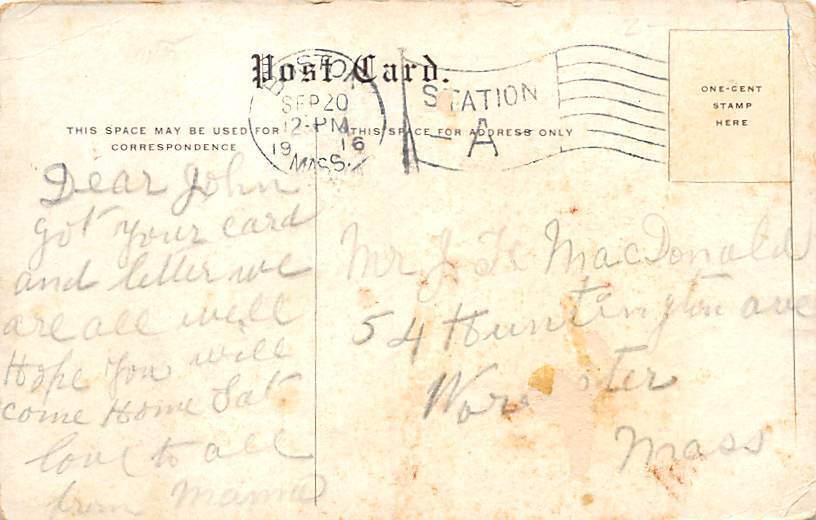 Post Card.
BOSTON
SEP 20
12-PM
19 16
MASS.
STATION
A
ONE-CENT
STAMP
HERE
THIS SPACE MAY BE USED FOR
CORRESPONDENCE
THIS SPACE FOR ADDRESS ONLY
Dear John
got your card
and letter we
are all well
Hope you will
come Home Sat
love to all
from Mama
Mr J. MacDonald
54 Huntington ave
Mass